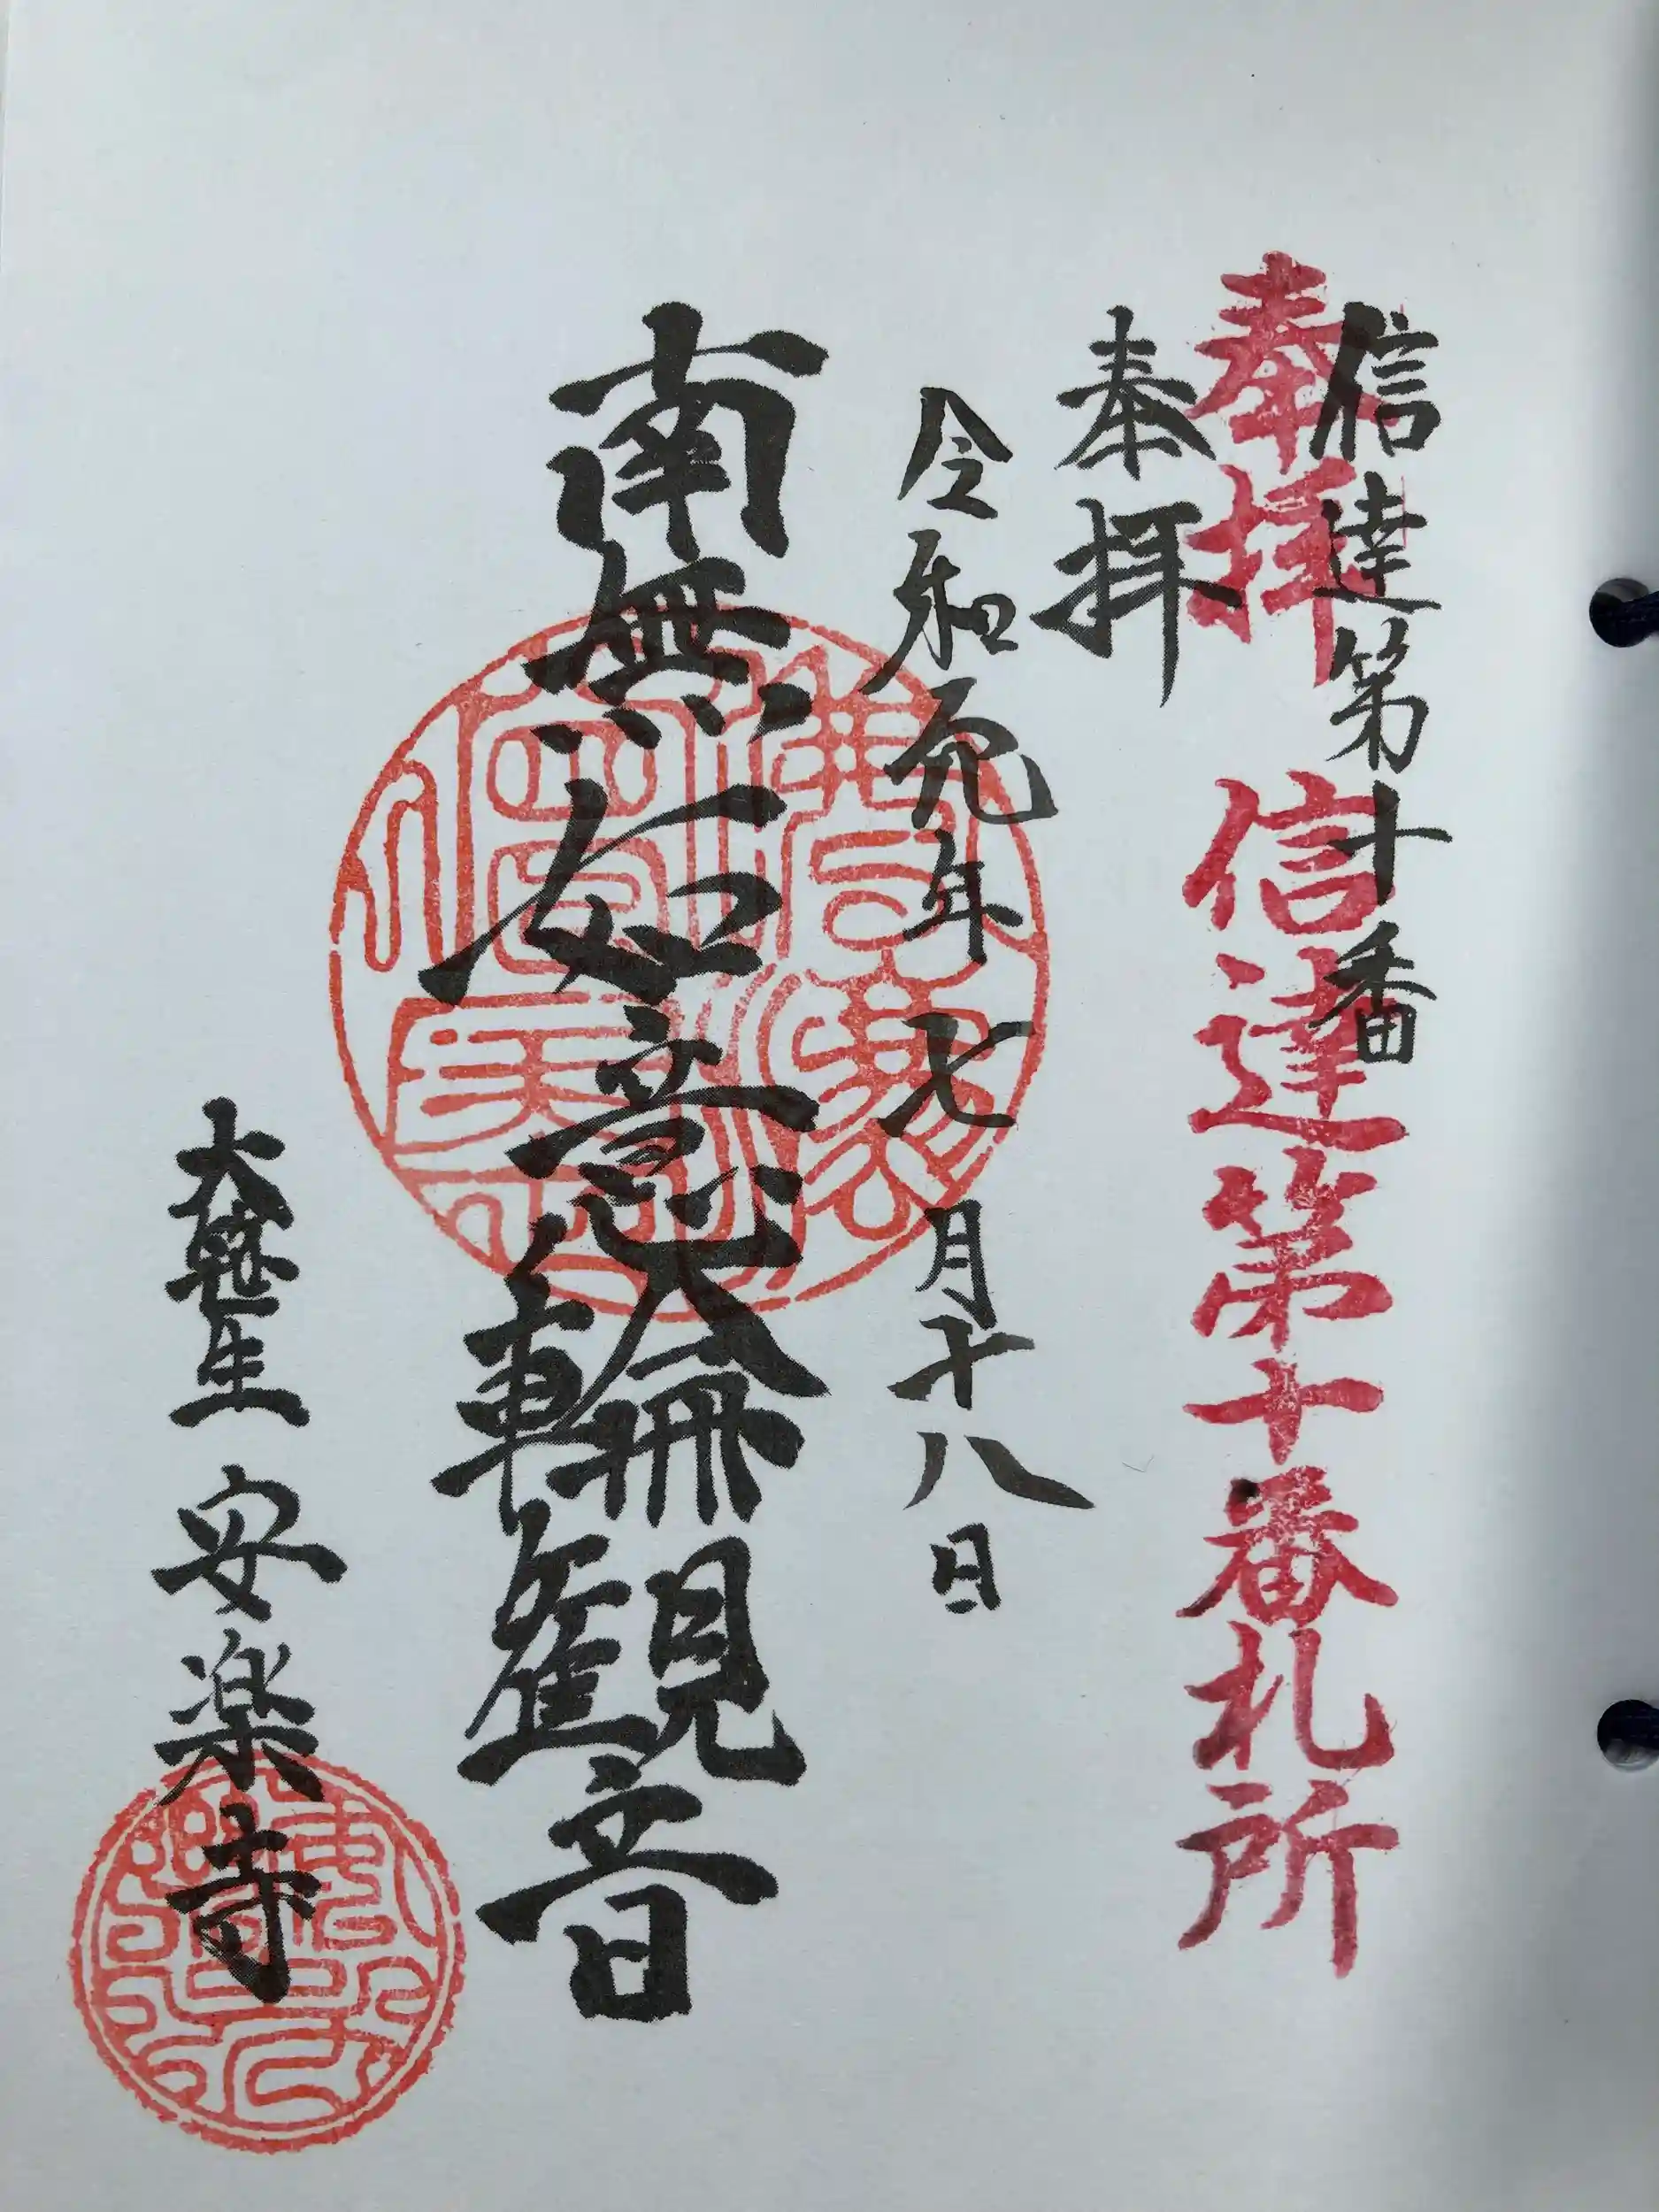 信達第十番
奉拝 信達第十番札所
奉拝
令和元年七月十八日
南無如意輪観音
安楽寺